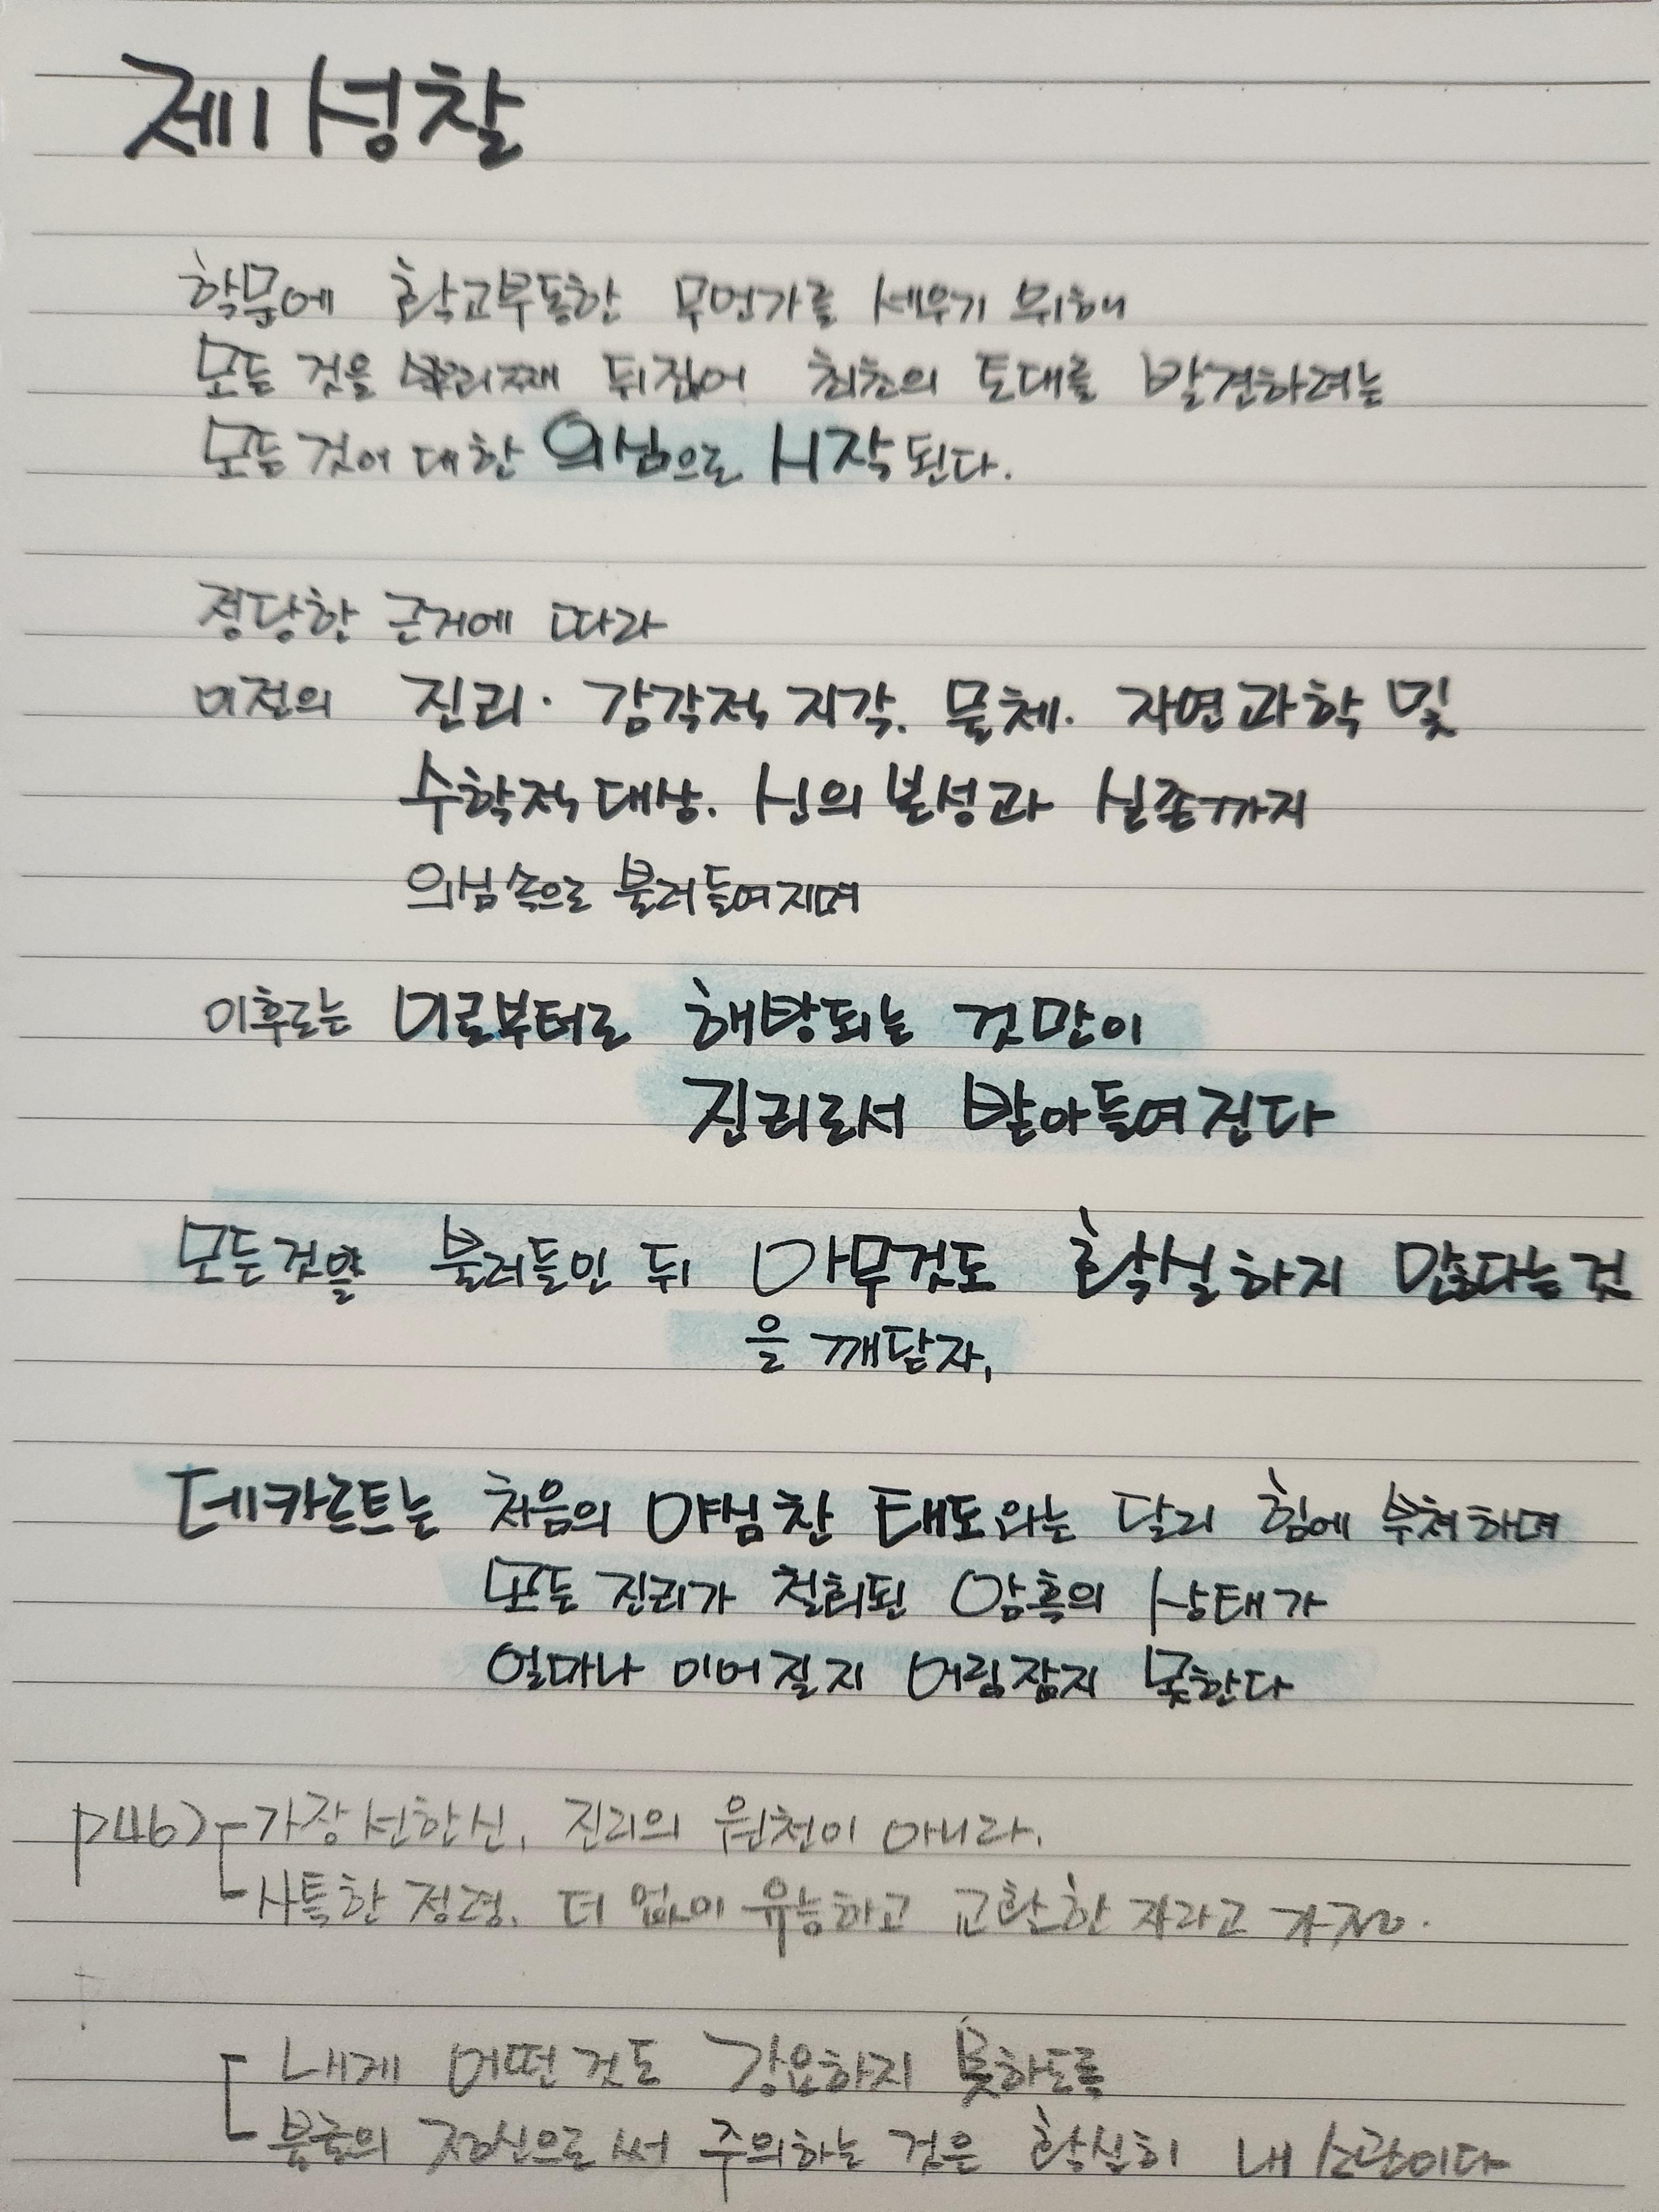 제1성찰
학문에 확고부동한 무언가를 세우기 위해
모든 것을 뿌리째 뒤집어 최초의 토대를 발견하려는
모든 것에 대한 의심으로 시작된다.
정당한 근거에 따라
이전의 진리. 감각적 지각. 물체. 자연과학 및
수학적 대상. 신의 본성과 실존까지
의심 속으로 불러들여지며
이후로는 이로부터로 해방되는 것만이
진리로서 받아들여진다
모든것을 불러들인 뒤 아무것도 확실하지 않다는 것
을 깨닫자,
데카르트는 처음의 야심찬 태도와는 달리 힘에 부쳐하며
모든 진리가 철회된 암흑의 상태가
얼마나 이어질지 어림잡지 못한다
p46) 가장 선한 신, 진리의 원천이 아니라.
사특한 정령. 더 없이 유능하고 교활한 자라고 가정.
내게 어떤 것도 강요하지 못하도록
불굴의 정신으로써 주의하는 것은 확실히 내 소관이다